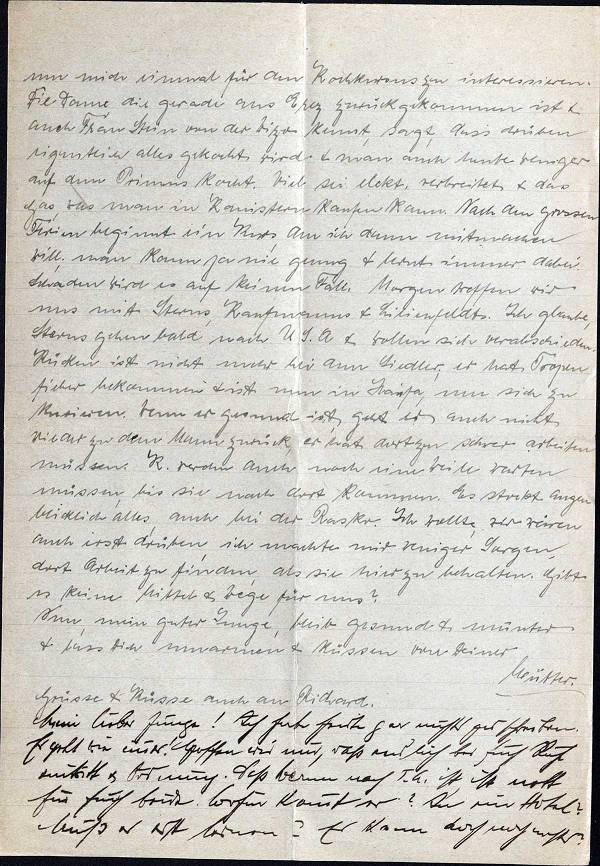 um mich einmal für den Kochkursus zu interessieren.
Die Dame die gerade aus Erez zurückgekommen ist &
auch Frau Stein von der kennt, sagt, dass drüben
alles gekocht wird & man auch heute weniger
auf dem Primus kocht. Viel sei elekt. verbreitet & das
Gas, das man in Kanistern kaufen kann. Nach den grossen
Ferien beginnt ein Kurs, den ich dann mitmachen
will. man kann ja nie genug & lernt immer dabei
Schaden wird es auf keinen Fall. Morgen treffen wir
uns mit Sterns, Kaufmanns & Lilienfeldts. Ich glaube,
Sterns gehen bald nach U.S.A & wollen sich verabschieden.
ist nicht mehr bei dem Siedler, er hat Tropen
fieber bekommen & ist nun in Haifa, um sich zu
kurieren. Wenn er gesund ist, geht er auch nicht
wieder zu dem Mann zurück, er hat dort zu schwer arbeiten
müssen. K. werden auch noch eine Weile warten
müssen, bis sie nach dort kommen. Es stockt augen
blicklich alles, auch bei der Rasko. Ich wollte, wir wären
auch erst drüben, ich machte mir weniger Sorgen,
dort Arbeit zu finden, als sie hier zu behalten. Gibt
es keine Mittel & Wege für uns?
Nun, mein guter Junge, bleib gesund & munter
& lass Dich umarmen & küssen von Deiner
Mutter.
Grüsse & Küsse auch an Richard.
Mein lieber Junge! Ich habe heute gar nichts zu schreiben.
Es geht wie immer. Hoffen wir nur, dass endlich bei Euch Ruhe
eintritt & Ordnung. Dass nach T.A. ist ist nett
für Euch beide. Was kann er? In ein Hotel?
Muß er erst lernen? Er kann doch